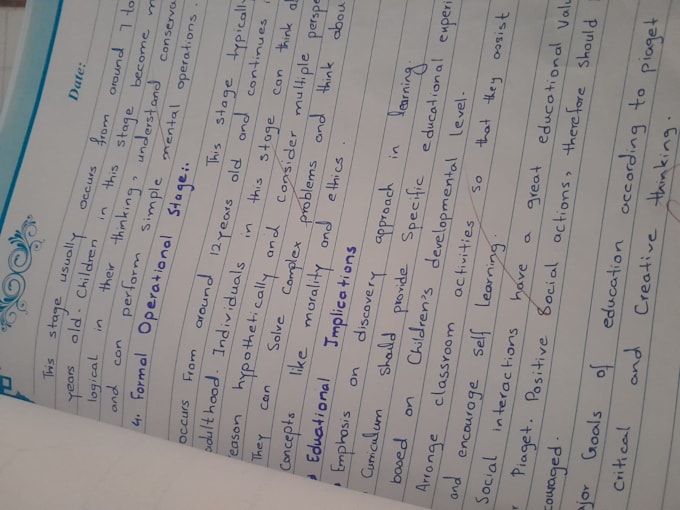 Date:
This stage usually occurs from around 7 to
years old. Children in this stage become m
logical in their thinking, understand conserva
and can perform simple mental operations.
4. Formal Operational Stage:
occurs From around 12 years old and continues
adulthood. Individuals in this stage can think a
eason hypothetically and consider multiple perspe
They can Solve Complex problems and think abou
Concepts like morality and ethics.
Educational Implications
Emphosis on discovery approach in learning
Curriculum should provide Specific educational experi
based on Children's developmental level.
Arrange classroom activities so that they assist
and encourage self learning.
Social interactions have a great educational Valu
Piaget. Positive Social actions, therefore should
couraged.
jor Goals of education according to piaget
critical and Creative thinking.